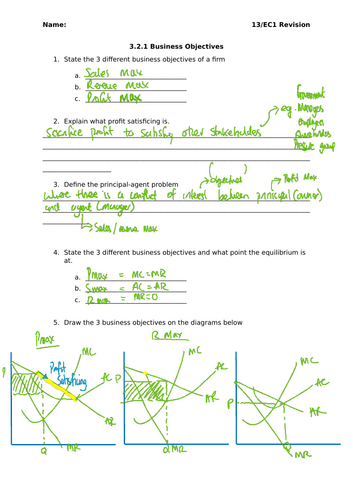 Name: 13/EC1 Revision
3.2.1 Business Objectives
1. State the 3 different business objectives of a firm
a. Sales max
b. Revenue Max
c. Profit Max
Government
eg. Managers
employees
Shareholders
Pressure group
2. Explain what profit satisficing is.
Sacrifice profit to satisfy other stakeholders
Objectives
Profit Max
3. Define the principal-agent problem
where there is a conflict of interest between principal (owner)
and agent (manager)
Sales / revenue Max
4. State the 3 different business objectives and what point the equilibrium is
at.
a. Pmax = MC=MR
b. Smax = AC=AR
c. Rmax = MR=0
5. Draw the 3 business objectives on the diagrams below
Pmax
R Max
P
MC
Profit
Satisficing
AC
AR
MR
Q
P
MC
AC
AR
Q
MR
P
MC
AC
AR
Q
MR